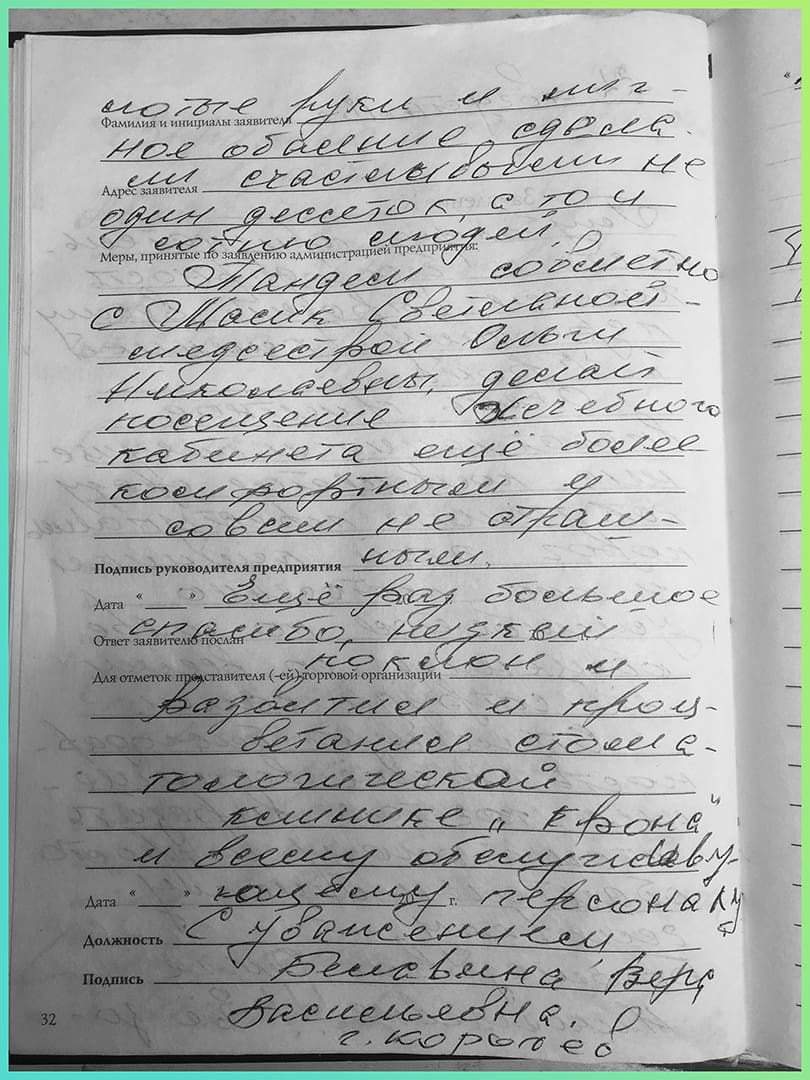 лотые руки и лич-
Фамилия и инициалы заявителя
ное обаяние сдела
ли счастливыми не
Адрес заявителя
один десяток, а то и
сотню людей.
Меры, принятые по заявлению администрацией предприятия:
Тандем совместно
с Светланой-
медсестрой Ольги
Николаевны, делает
посещение лечебного
кабинета ещё более
комфортным и
совсем не страш-
Подпись руководителя предприятия ным.
Дата "___" Ещё раз большое
спасибо, низкий
Ответ заявителю послан
поклон и
Для отметок представителя (-ей) торговой организации
развития и проц-
ветания стома-
тологической
клинике „Крона"
и всему обслужив
Дата "___" ющему г. персоналу
Должность С уважением,
Подпись Вера
Васильевна.
32
г. Королёв